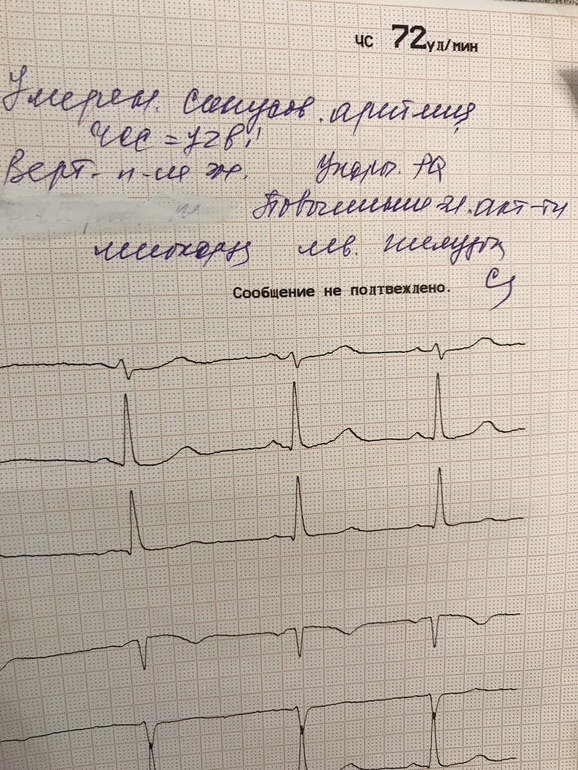 ЧС 72 уд/мин
Умерен. синусов. аритмия
ЧСС = 72 в 1'
Верт. п-ие эл. Укороч. PQ
Повышение эл. акт-ти
миокарда лев. желудоч
Сообщение не подтвеждено.